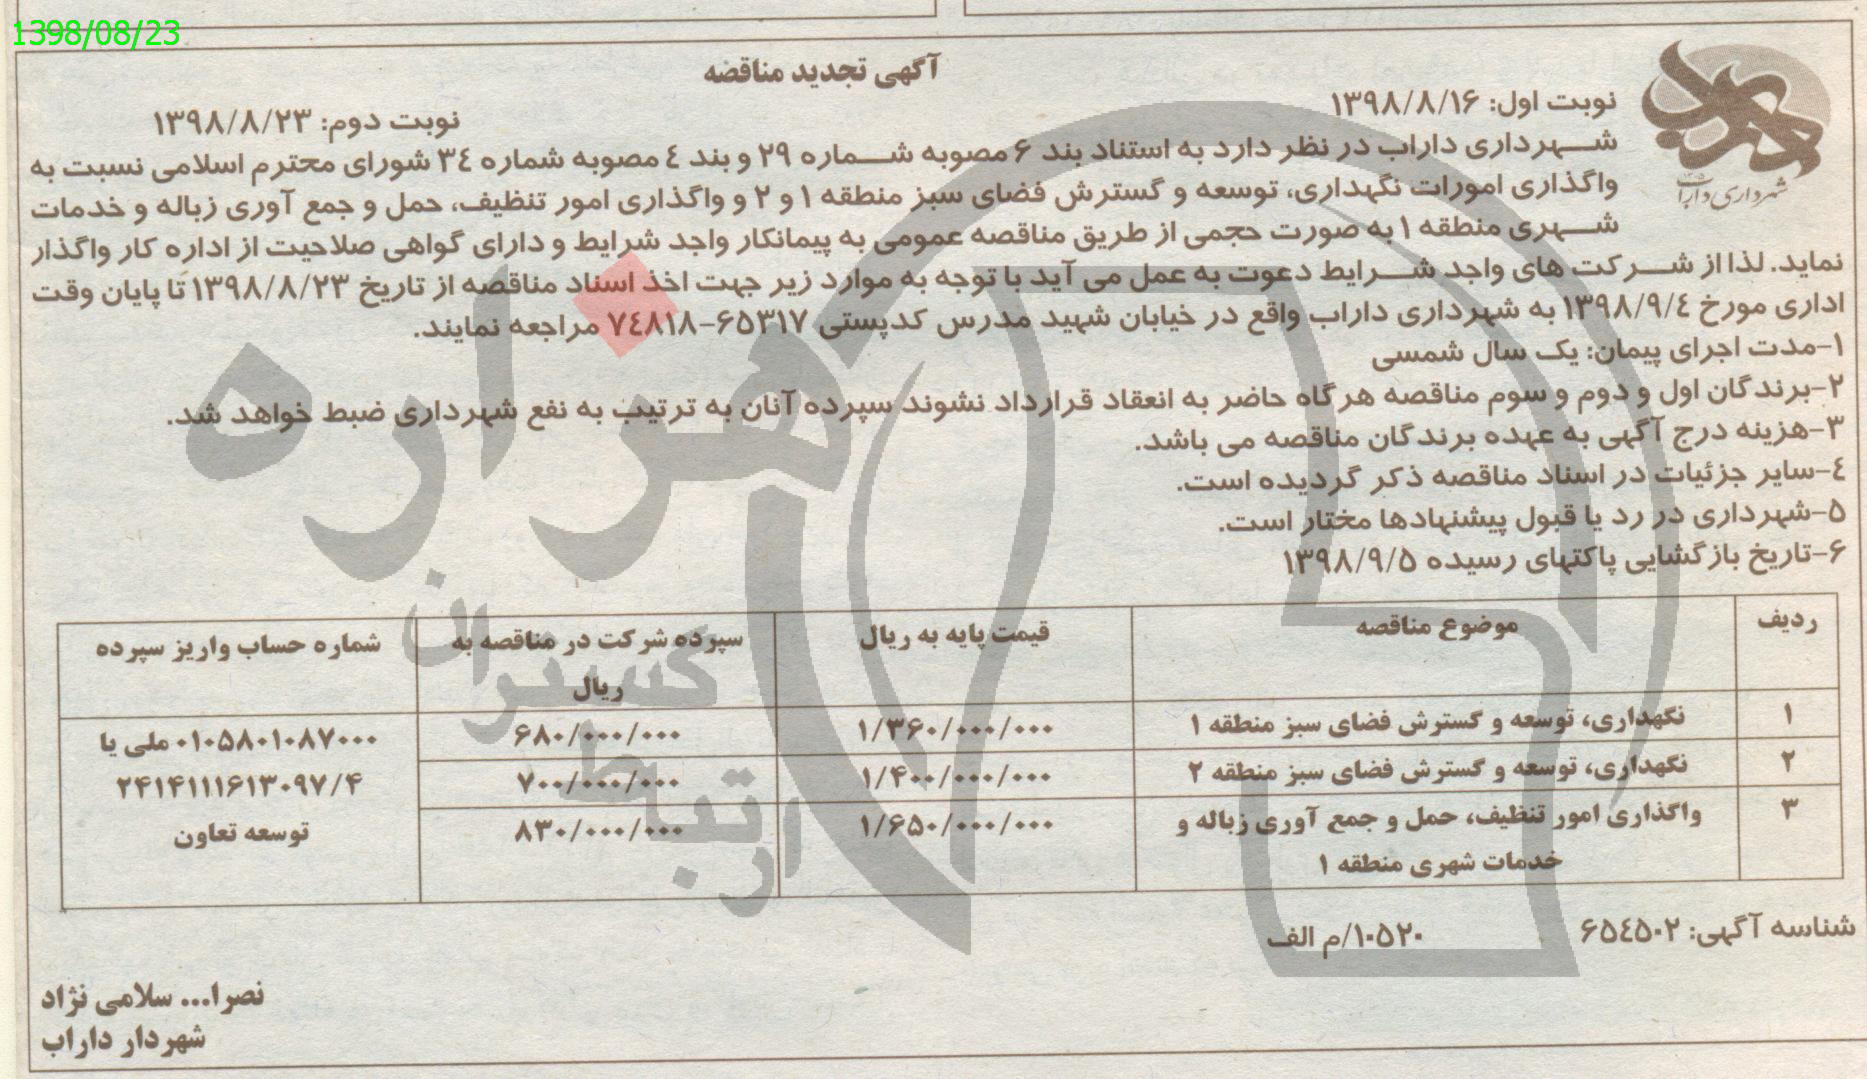 1398/08/23
آگهی تجدید مناقصه
نوبت اول: ۱۳۹۸/۸/۱۶
نوبت دوم: ۱۳۹۸/۸/۲۳
شهرداری داراب
شهرداری داراب در نظر دارد به استناد بند ۶ مصوبه شماره ۲۹ و بند ٤ مصوبه شماره ۳٤ شورای محترم اسلامی نسبت به
واگذاری امورات نگهداری، توسعه و گسترش فضای سبز منطقه ۱ و ۲ و واگذاری امور تنظیف، حمل و جمع آوری زباله و خدمات
شهری منطقه ۱ به صورت حجمی از طریق مناقصه عمومی به پیمانکار واجد شرایط و دارای گواهی صلاحیت از اداره کار واگذار
نماید. لذا از شرکت های واجد شرایط دعوت به عمل می آید با توجه به موارد زیر جهت اخذ اسناد مناقصه از تاریخ ۱۳۹۸/۸/۲۳ تا پایان وقت
اداری مورخ ۱۳۹۸/۹/٤ به شهرداری داراب واقع در خیابان شهید مدرس کدپستی ۶۵۳۱۷-۷٤۸۱۸ مراجعه نمایند.
۱-مدت اجرای پیمان: یک سال شمسی
۲-برندگان اول و دوم و سوم مناقصه هرگاه حاضر به انعقاد قرارداد نشوند سپرده آنان به ترتیب به نفع شهرداری ضبط خواهد شد.
۳-هزینه درج آگهی به عهده برندگان مناقصه می باشد.
٤-سایر جزئیات در اسناد مناقصه ذکر گردیده است.
۵-شهرداری در رد یا قبول پیشنهادها مختار است.
۶-تاریخ بازگشایی پاکتهای رسیده ۱۳۹۸/۹/۵
ردیف موضوع مناقصه قیمت پایه به ریال سپرده شرکت در مناقصه به ریال شماره حساب واریز سپرده
۱ نگهداری، توسعه و گسترش فضای سبز منطقه ۱ ۱/۳۶۰/۰۰۰/۰۰۰ ۶۸۰/۰۰۰/۰۰۰ ۰۱۰۵۸۰۱۰۸۷۰۰۰ ملی یا
۲ نگهداری، توسعه و گسترش فضای سبز منطقه ۲ ۱/۴۰۰/۰۰۰/۰۰۰ ۷۰۰/۰۰۰/۰۰۰ ۲۴۱۴۱۱۱۶۱۳۰۹۷/۴
۳ واگذاری امور تنظیف، حمل و جمع آوری زباله و ۱/۶۵۰/۰۰۰/۰۰۰ ۸۳۰/۰۰۰/۰۰۰ توسعه تعاون
خدمات شهری منطقه ۱
شناسه آگهی: ۶۵٤۵۰۲
۱۰۵۲۰/م الف
نصرا... سلامی نژاد
شهردار داراب
هزاره
ارتباط گستران